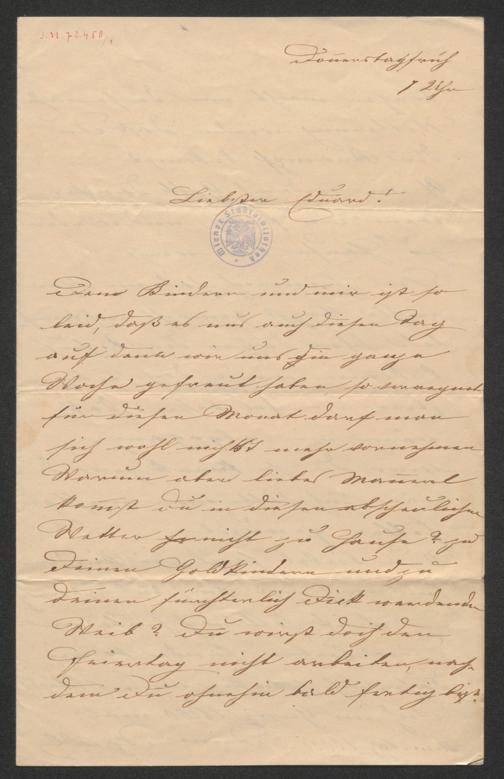 J.N. 72.458/1
Donnerstag früh
7 Uhr
Liebster Eduard!
Wiener Stadtbibliothek
Den Kindern und mir ist so
leid, daß es uns auch diesen Tag
auf denn wir uns die ganze
Woche gefreut haben so verregnet
für diesen Monat darf man
sich wohl nichts mehr vornehmen
Warum aber liebes Mannerl
kommst Du in diesen abscheulichen
Wetter nicht zu Hause? zu
Deinen Goldkindern und zu
Deinen fürchterlich Dick werdenden
Weib? Du wirst doch den
Feiertag nicht arbeiten, nach-
dem Du ohnehin bald fertig bist.